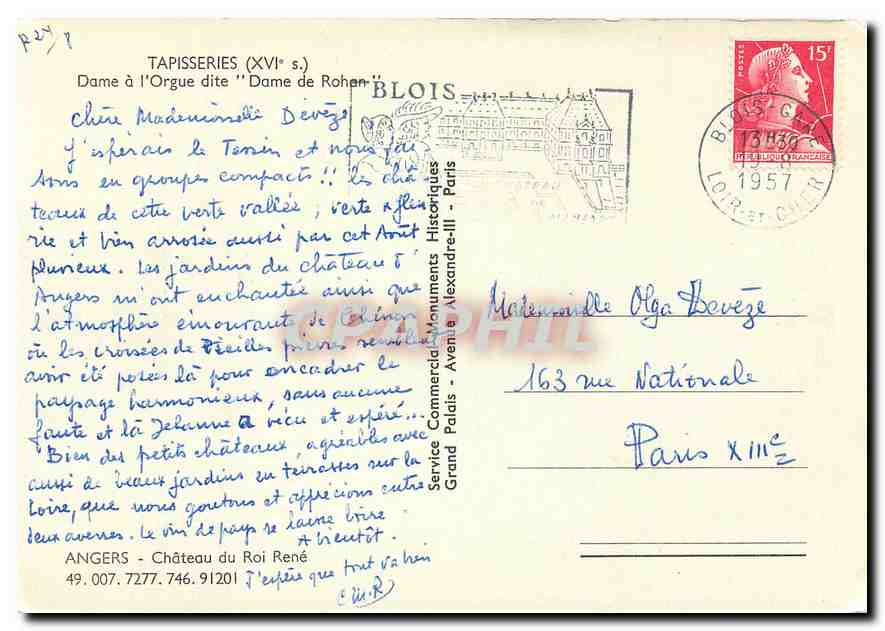 R24/8
TAPISSERIES (XVIe s.)
Dame à l'Orgue dite "Dame de Rohan"
Chère Mademoiselle Devèze
J'espérais le Tessin et nous fai-
sons en groupes compacts!! les châ-
teaux de cette verte vallée; verte & fleu-
rie et bien arrosée aussi par cet Août
pluvieux. Les jardins du château d'
Angers m'ont enchantée ainsi que
l'atmosphère émouvante de Chinon
où les croisées de vieilles pierres semblent
avoir été posées là pour encadrer le
paysage harmonieux, sans aucune
faute et là Jehanne a vécu et espéré...
Bien des petits châteaux, agréables avec
aussi de beaux jardins en terrasses sur la
Loire, que nous goutons et apprécions entre
deux averses. Le vin de pays se laisse boire
A bientôt.
J'espère que tout va bien
C M.R
ANGERS - Château du Roi René
49. 007. 7277. 746. 91201
Service Commercial Monuments Historiques
Grand Palais - Avenue Alexandre-III - Paris
BLOIS
CHATEAU
POSTES
15F
RÉPUBLIQUE FRANÇAISE
BLOIS-GARE
13H30
1957
LOIR-ET-CHER
Mademoiselle Olga Devèze
163 rue Nationale
Paris XIIIe
CPAPHIL